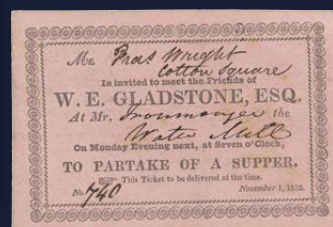 Mr. Thos Wright
Cotton Square
Is invited to meet the Friends of
W. E. GLADSTONE, ESQ.
At Mr. Ironmonger the
Water Mill
On Monday Evening next, at Seven o'Clock,
TO PARTAKE OF A SUPPER.
☞ This Ticket to be delivered at the time.
No. 740 November 1, 1832.